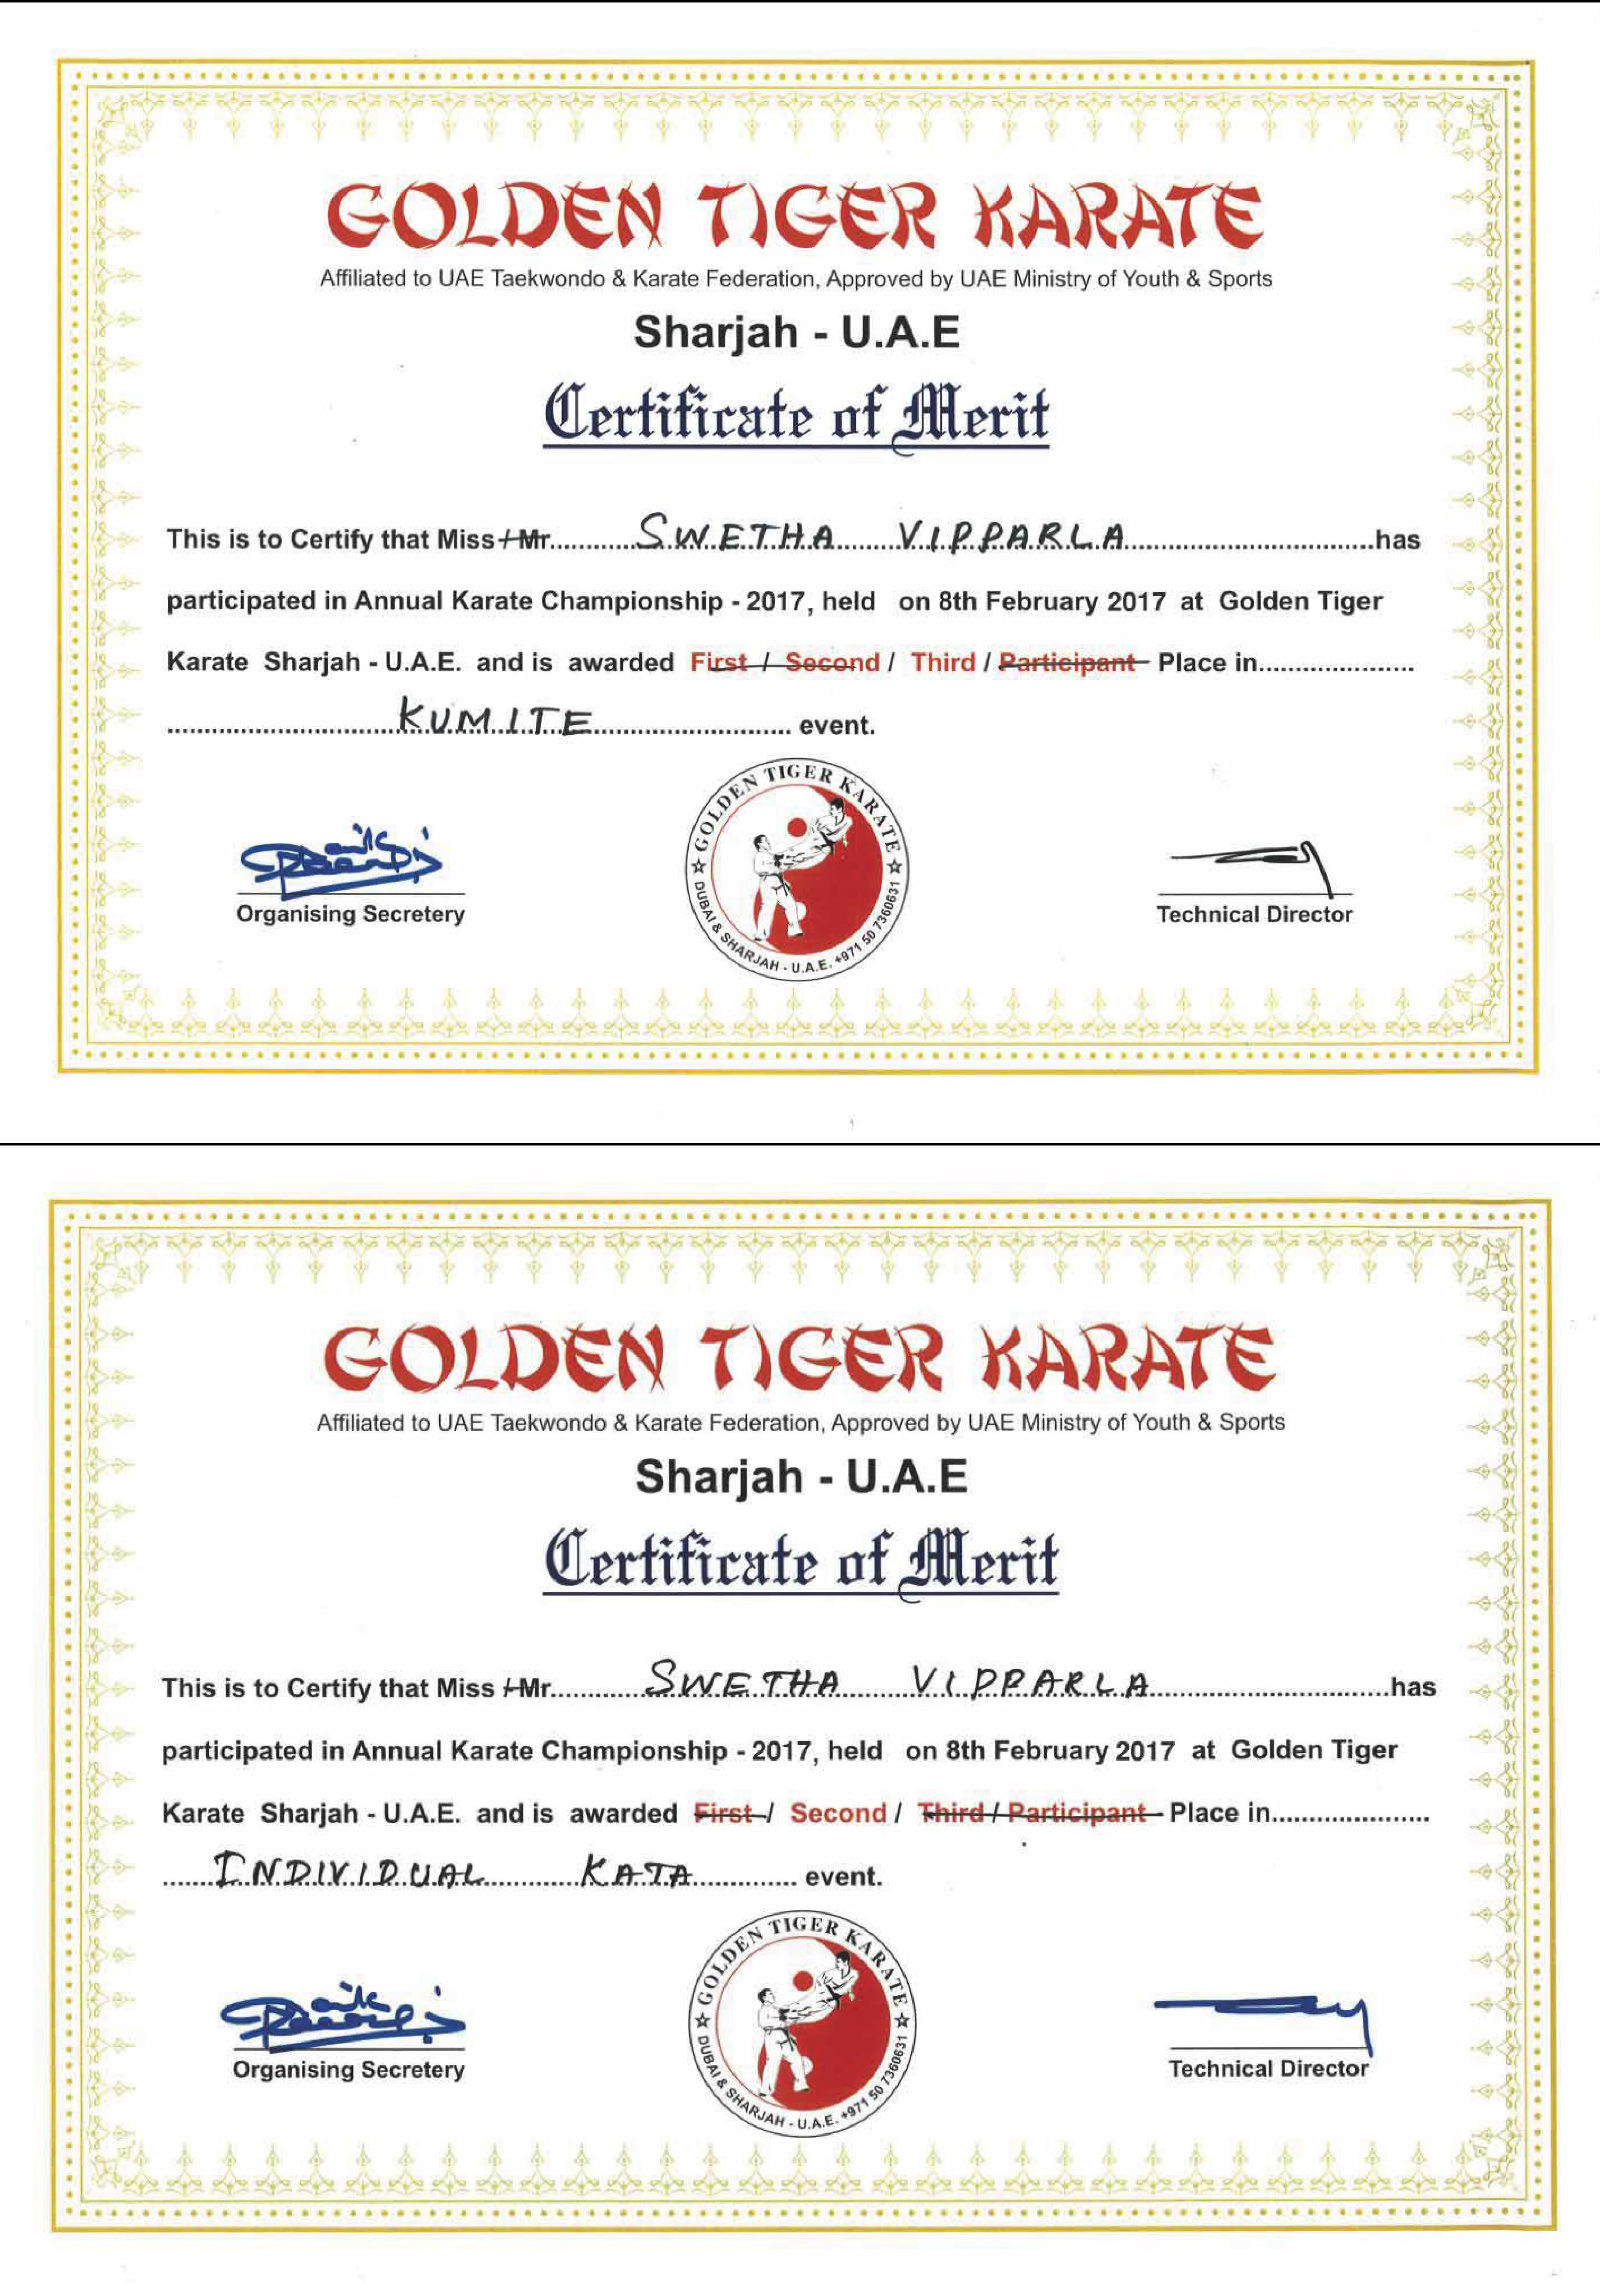 GOLDEN TIGER KARATE
Affiliated to UAE Taekwondo & Karate Federation, Approved by UAE Ministry of Youth & Sports
Sharjah - U.A.E
Certificate of Merit
This is to Certify that Miss / Mr............SWETHA VIPPARLA............has
participated in Annual Karate Championship - 2017, held on 8th February 2017 at Golden Tiger
Karate Sharjah - U.A.E. and is awarded First / Second / Third / Participant Place in.....................
............KUMITE............ event.
GOLDEN TIGER KARATE
DUBAI & SHARJAH - U.A.E. +971 50 7360631
Organising Secretery
Technical Director
GOLDEN TIGER KARATE
Affiliated to UAE Taekwondo & Karate Federation, Approved by UAE Ministry of Youth & Sports
Sharjah - U.A.E
Certificate of Merit
This is to Certify that Miss / Mr............SWETHA VIPPARLA............has
participated in Annual Karate Championship - 2017, held on 8th February 2017 at Golden Tiger
Karate Sharjah - U.A.E. and is awarded First / Second / Third / Participant Place in.....................
.......INDIVIDUAL KATA.............. event.
GOLDEN TIGER KARATE
DUBAI & SHARJAH - U.A.E. +971 50 7360631
Organising Secretery
Technical Director